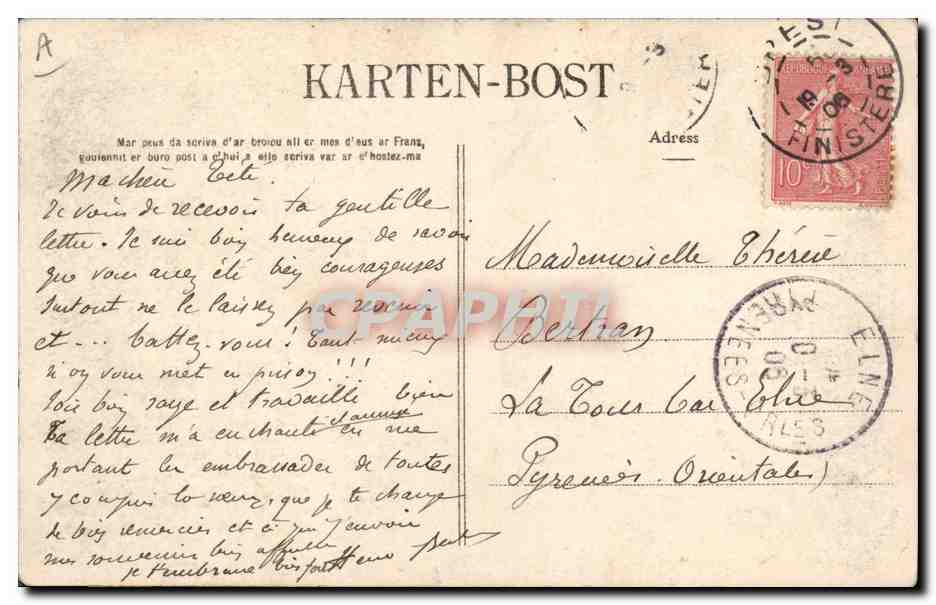 A
KARTEN-BOST
Mar peus da scriva d'ar broiou all er mes d'eus ar Frans,
goulennit er buro post a c'hui a elle scriva var ar c'hostez-ma
Adress
BREST
19 -3
06
FINISTERE
10
Ma chère
Je viens de recevoir ta gentille
lettre. Je suis bien heureux de savoir
que vous avez été bien courageuses
surtout ne le laissez pas revenir
et ... battez-vous! Tant mieux
si on vous met en prison!!!
Sois bien sage et travaille bien
Ta lettre m'a enchanté en me
portant les embrassades de toutes
y compris la sœur, que je te charge
de bien remercier et à qui j'envoie
mes souvenirs bien
je t'embrasse bien fort
Mademoiselle Thérèse
Bertran
La Tour bas Elne
Pyrenées Orientales
ELNE
PYRENEES-ORLES
06
CPAPHIL